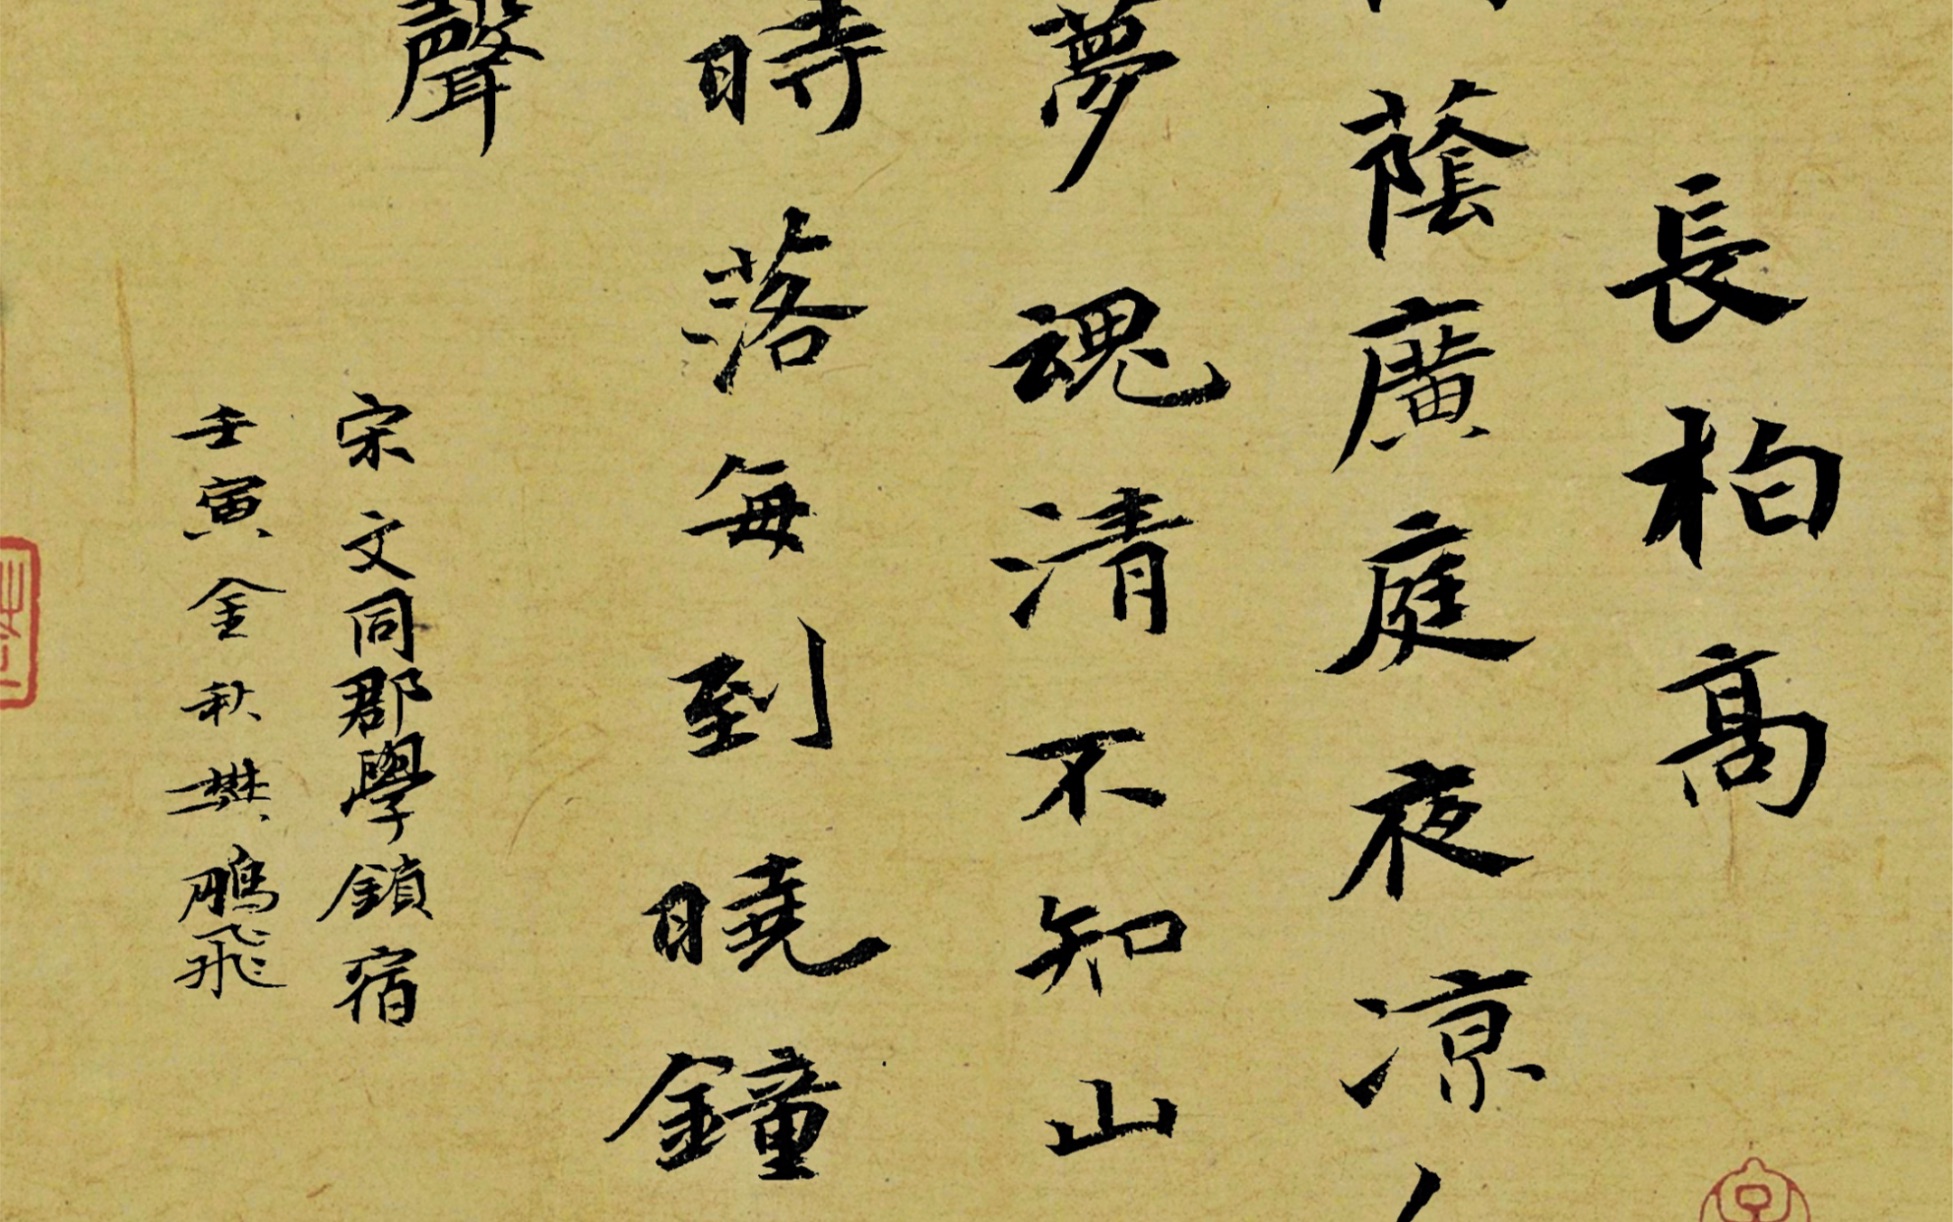 長柏高
蔭廣庭夜凉
夢魂清不知山
時落每到曉鐘
聲
宋文同郡學鎖宿
壬寅金秋樊鵬飛